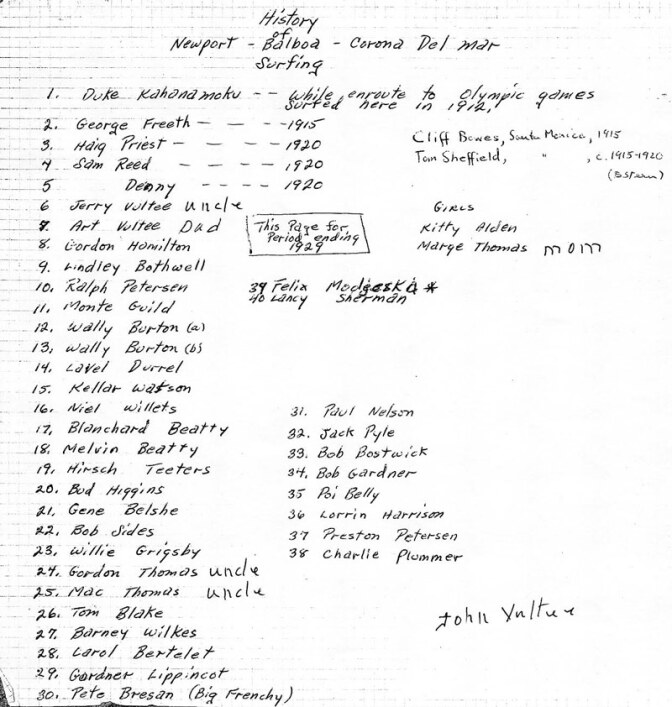 History
of
Newport - Balboa - Corona Del mar
Surfing
1. Duke Kahanamoku -- while enroute to Olympic games
surfed here in 1912,
2. George Freeth - - - 1915
3 Haig Priest - - - 1920
4 Sam Reed - - - - 1920
5 Denny - - - - 1920
Cliff Bowes, Santa Monica, 1915
Tom Sheffield, " , c. 1915-1920
6 Jerry Vultee uncle
7. Art Vultee Dad
8. Gordon Hamilton
9. Lindley Bothwell
10. Ralph Petersen
11. Monte Guild
12. Wally Burton (a)
13. Wally Burton (b)
14. Lavel Durrel
15. Kellar Watson
16. Niel Willets
17. Blanchard Beatty
18. Melvin Beatty
19. Hirsch Teeters
20. Bud Higgins
21. Gene Belshe
22. Bob Sides
23. Willie Grigsby
24. Gordon Thomas uncle
25. Mac Thomas uncle
26. Tom Blake
27. Barney Wilkes
28. Carol Bertelet
29. Gardner Lippincot
30. Pete Bresan (Big Frenchy)
This Page for
Period ending
1929
GIRLS
Kitty Alden
Marge Thomas mom
39 Felix Modjeska *
40 Lancy Sherman
31. Paul Nelson
32. Jack Pyle
33. Bob Bostwick
34. Bob Gardner
35 Poi Belly
36 Lorrin Harrison
37 Preston Petersen
38 Charlie Plummer
John Vultee